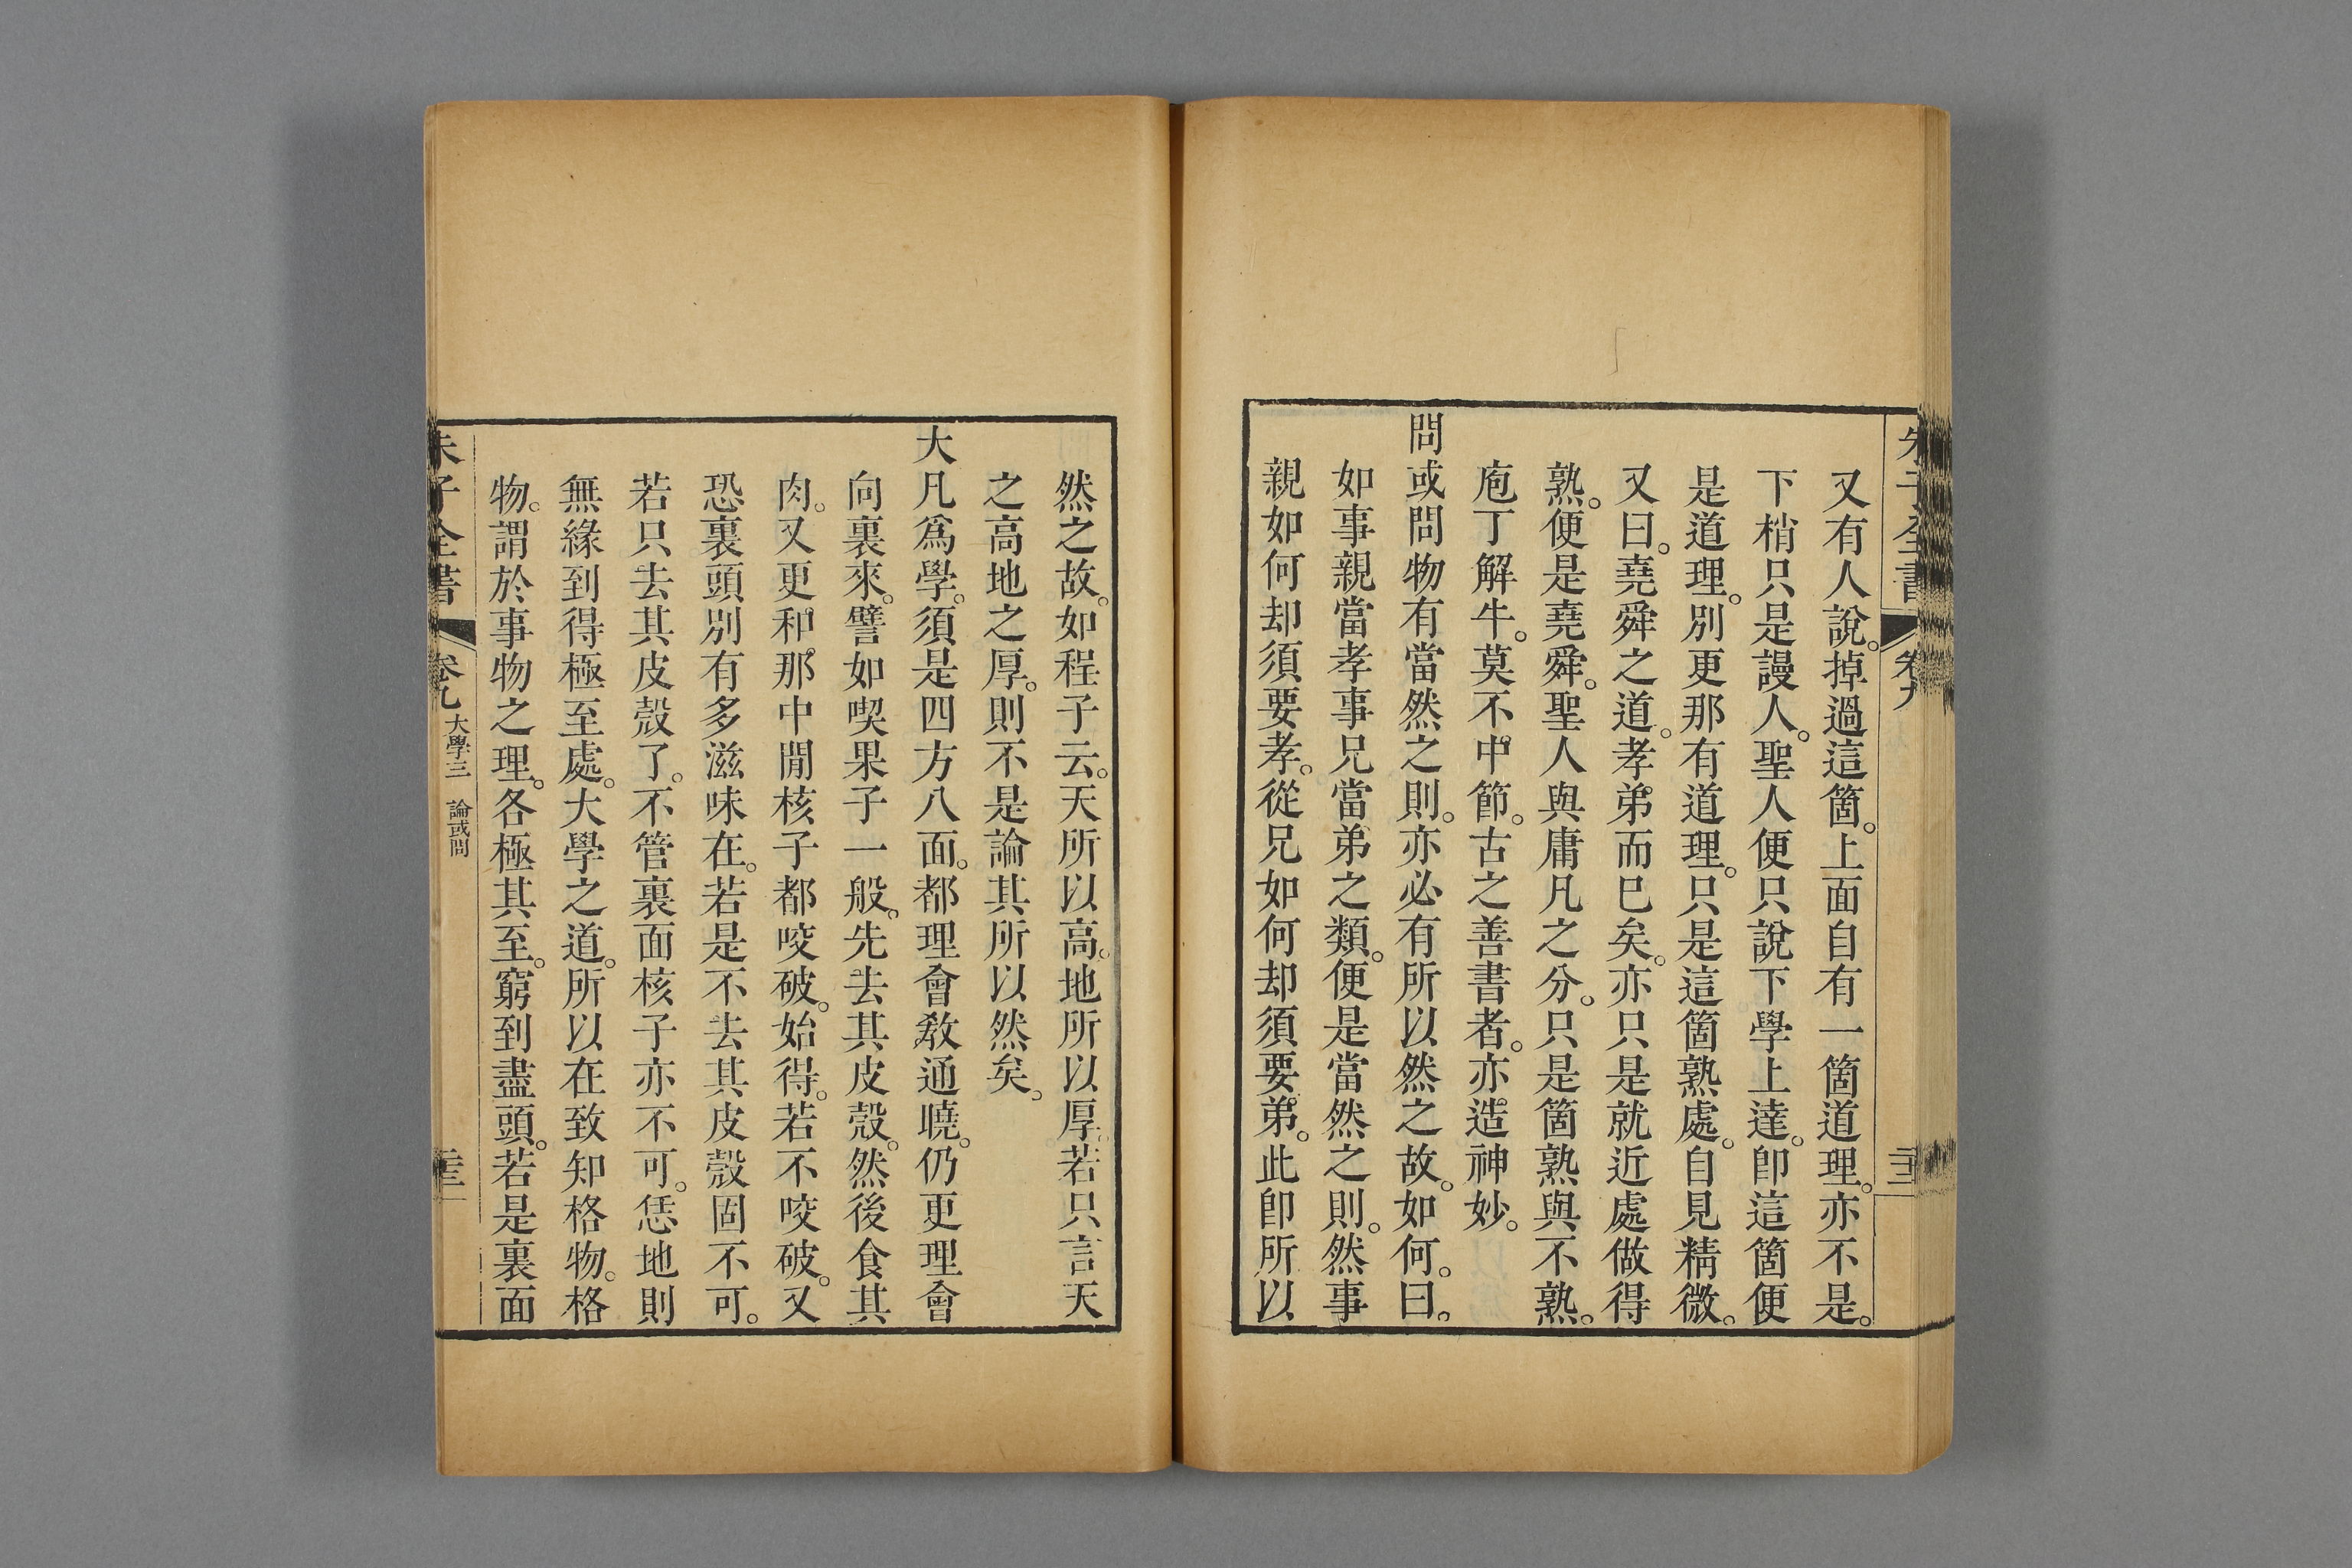 朱子全書
卷九
又有人說。掉過這箇。上面自有一箇道理。亦不是。
下梢只是謾人。聖人便只說下學上達。卽這箇便
是道理。別更那有道理。只是這箇熟處。自見精微。
又曰。堯舜之道。孝弟而已矣。亦只是就近處做得
熟。便是堯舜。聖人與庸凡之分。只是箇熟與不熟。
庖丁解牛。莫不中節。古之善書者。亦造神妙。
問或問物有當然之則。亦必有所以然之故。如何。曰。
如事親當孝事兄當弟之類。便是當然之則。然事
親如何却須要孝。從兄如何却須要弟。此卽所以
然之故。如程子云。天所以高。地所以厚。若只言天
之高地之厚。則不是論其所以然矣。
大凡爲學。須是四方八面。都理會敎通曉。仍更理會
向裏來。譬如喫果子一般。先去其皮殼。然後食其
肉。又更和那中閒核子都咬破。始得。若不咬破。又
恐裏頭別有多滋味在。若是不去其皮殼固不可。
若只去其皮殼了。不管裏面核子亦不可。恁地則
無緣到得極至處。大學之道。所以在致知格物。格
物。謂於事物之理。各極其至。窮到盡頭。若是裏面
朱子全書
卷九
大學三 論或問